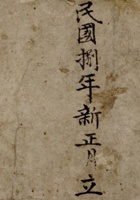 民國捌年新正月立